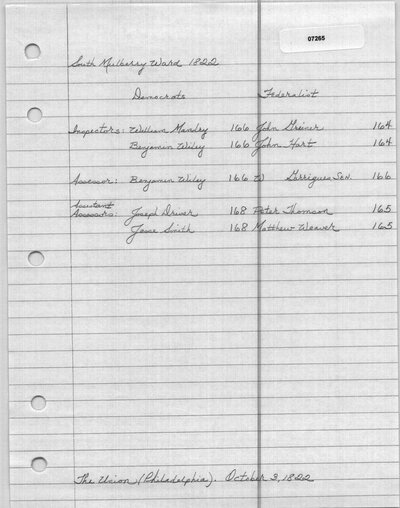 07265
South Mulberry Ward 1822
Democrats Federalist
Inspectors: William Mandry 166 John Greiner 164
Benjamin Wiley 166 John Hart 164
Assessor: Benjamin Wiley 166 W Garrigues Sen. 166
Assistant
Assessors: Joseph Driver 168 Peter Thomson 165
Jesse Smith 168 Matthew Weaver 165
The Union (Philadelphia). October 3, 1822